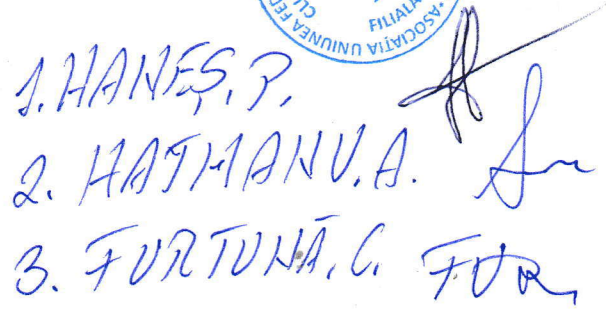 ASOCIAȚIA UNIUNEA FED
CLU
FILIALA
1. HANEȘ. P.
2. HATMANU. A.
3. FURTUNĂ. C. FUR